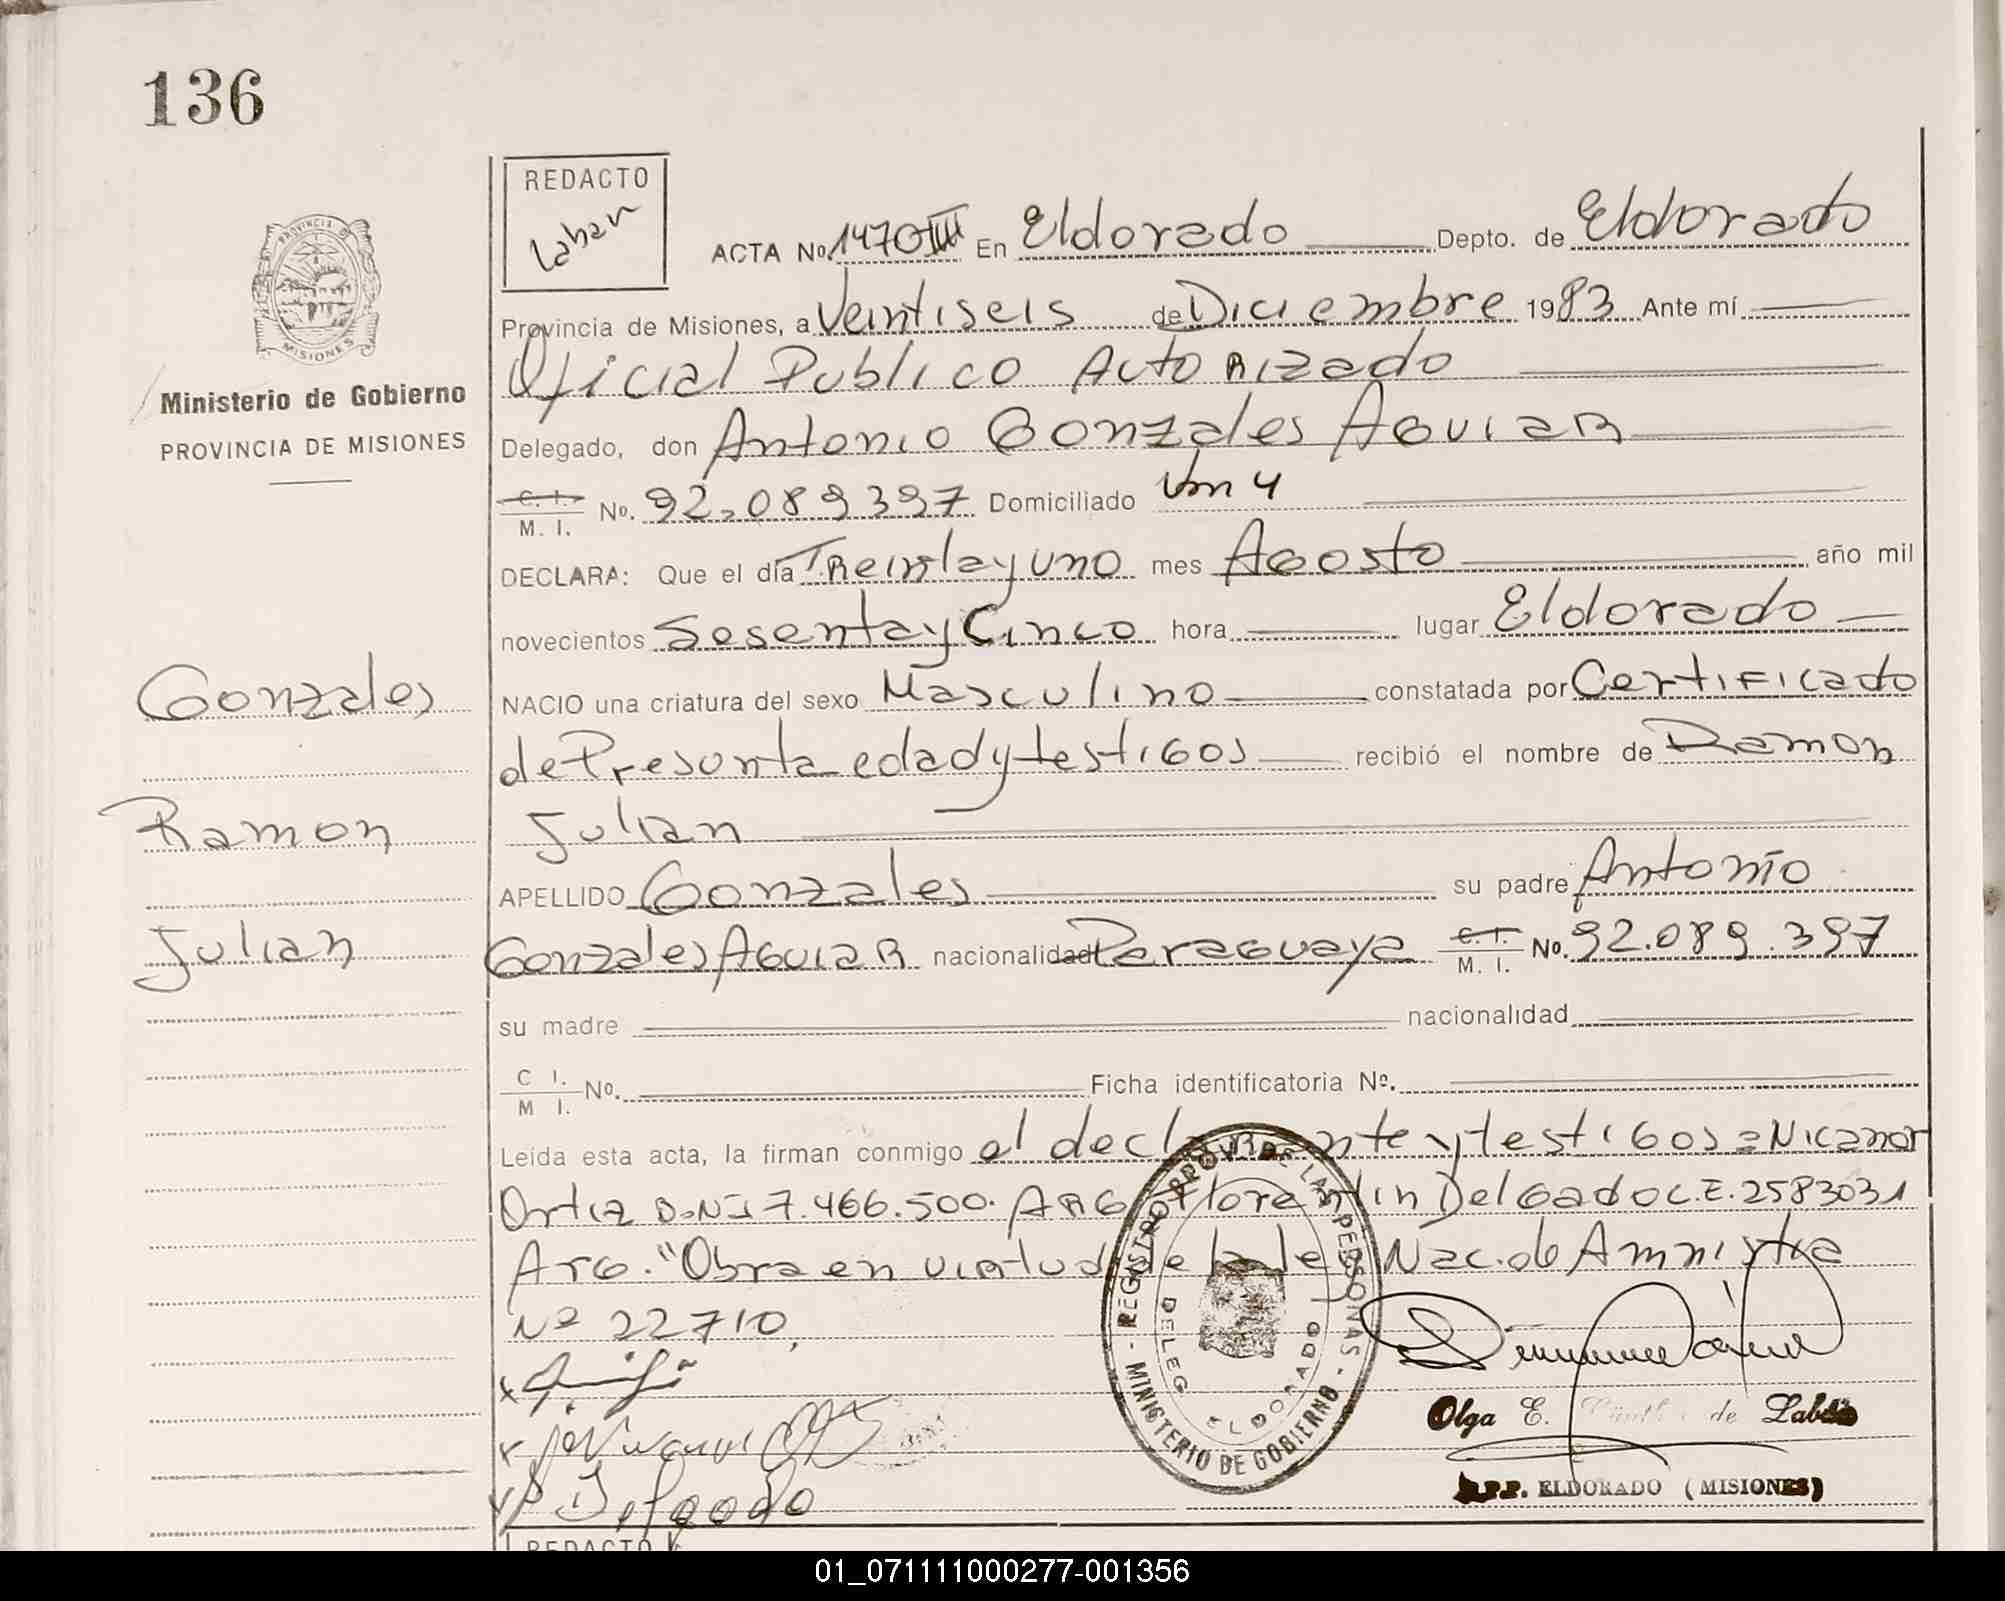 136
PROVINCIA D
MISIONES
Ministerio de Gobierno
PROVINCIA DE MISIONES
Gonzales
Ramon
Julian
REDACTO
Laban
ACTA No. 1470 III En Eldorado Depto. de Eldorado
Provincia de Misiones, a Veintiseis de Diciembre 1983 Ante mí
Oficial Publico Autorizado
Delegado, don Antonio Gonzales Aguiar
C. I. M. I. No. 92.089397 Domiciliado Km 4
DECLARA: Que el día Treintayuno mes Agosto año mil
novecientos Sesentay Cinco hora lugar Eldorado
NACIO una criatura del sexo Masculino constatada por Certificado
de Presunta edad y testigos recibió el nombre de Ramon
Julian
APELLIDO Gonzales su padre Antonio
Gonzales Aguiar nacionalidad Paraguaya C. I. M. I. No. 92.089.397
su madre nacionalidad
C I. M I. No. Ficha identificatoria Nº.
Leida esta acta, la firman conmigo el declarante y testigos = Nicanor
Ortiz D.N.I 7.466.500. ARG Florentin Delgado C.E. 2583031
Arg. "Obra en virtud de la ley Nac. de Amnistia
Nº 22710,
x
x Nicanor
x Delgado
REGISTRO PROV. DE LAS PERSONAS - MINISTERIO DE GOBIERNO -
DELEG ELDORADO
Olga E. de Laban
R.P.P. ELDORADO (MISIONES)
REDACTO
01_071111000277-001356